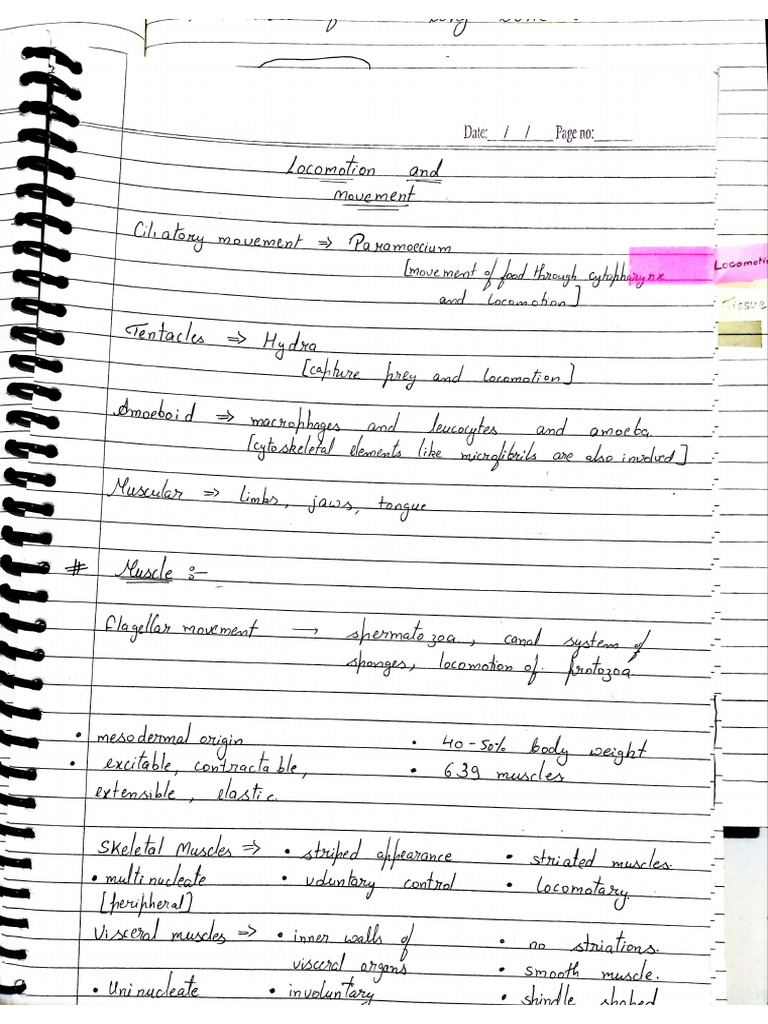 Date: / / Page no:
Locomotion and
movement
Ciliatory movement ⇒ Paramoecium
[movement of food through cytopharynx
and locomotion]
Locomotio
Tissue
Tentacles ⇒ Hydra
[capture prey and locomotion]
Amoeboid ⇒ macrophages and leucocytes and amoeba.
[cytoskeletal elements like microfibrils are also involved]
Muscular ⇒ limbs, jaws, tongue
# Muscle :-
flagellar movement → spermatozoa, canal system of
sponges, locomotion of protozoa
• mesodermal origin • 40-50% body weight
• excitable, contractable, • 639 muscles
extensible, elastic.
Skeletal Muscles ⇒ • striped appearance • striated muscles.
• multinucleate • voluntary control • locomotary.
[peripheral]
Visceral muscles ⇒ • inner walls of • no striations.
visceral organs • smooth muscle.
• Uninucleate • involuntary • shindle shaped